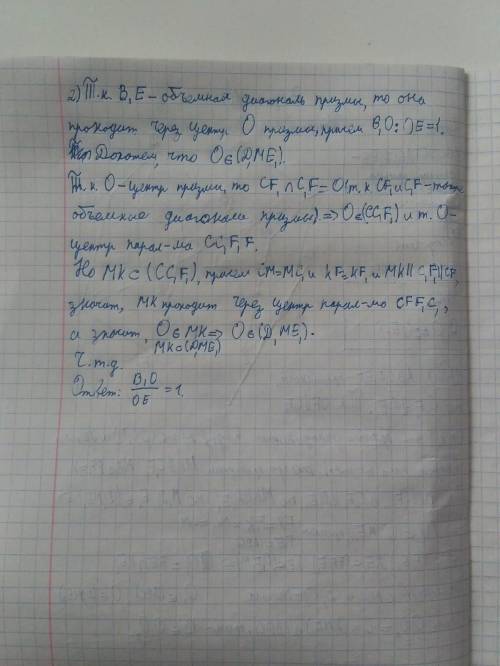 2) Т.к. B₁E – объемная диагональ призмы, то она
проходит через центр O призмы, причем B₁O:OE=1.
Докажем, что O∈(D₁ME₁).
Т.к. O-центр призмы, то CF₁∩C₁F=O(т.к CF₁ и C₁F-тоже
объемные диагонали призмы) ⇒ O∈(CC₁F₁) и т. O-
центр парал-ма CC₁F₁F.
Но MK⊂(CC₁F₁), причем CM=MC₁ и KF=KF₁ и MK∥C₁F₁∥CF,
значит, MK проходит через центр парал-ма CFF₁C₁,
а значит, O∈MK ⇒ O∈(D₁ME₁).
MK⊂(D₁ME₁)
Ч.т.д.
Ответ: B₁O/OE=1.